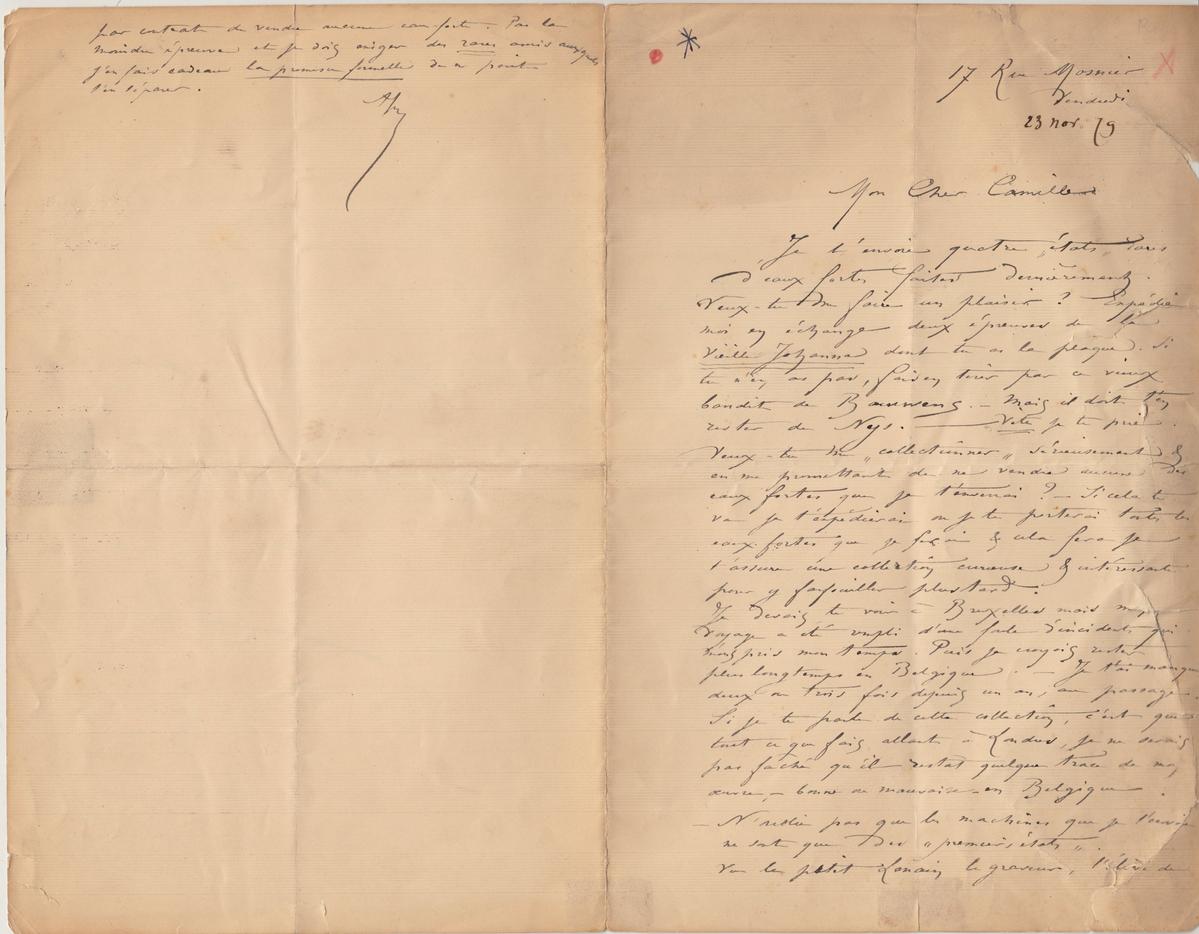 par contrat de vendre aucune eau-forte. Pas la
moindre épreuve et je dois exiger des rares amis auxquels
j'en fais cadeau la promesse formelle de ne point
s'en séparer.
17 Rue Mosnier
Vendredi
23 Nov. 79
Mon Cher Camille
Je t'envoie quatre „états" rares
d'eaux fortes faites dernièrement.
Veux-tu me faire un plaisir ? Expédie
moi en échange deux épreuves de la
Vieille Johanna dont tu as la plaque. Si
tu n'en as pas, fais en tirer par ce vieux
bandit de Bouwens. — Mais il doit t'en
rester de Nys. — Vite je te prie.
Veux-tu me „collectionner" sérieusement &
en me promettant de ne vendre aucune des
eaux fortes que je t'enverrai ? — Si cela te
va je t'expédierai ou je te porterai toutes les
eaux fortes que je ferai & cela fera je
t'assure une collection curieuse & intéressante
pour y farfouiller plus tard.
Je devais te voir à Bruxelles mais mon
voyage a été rempli d'une foule d'incidents qui
m'ont pris mon temps. Puis je croyais rester
plus longtemps en Belgique. — Je t'ai manqué
deux ou trois fois depuis un an, au passage.
Si je te parle de cette collection, c'est que
tout ce que fais allant à Londres, je ne serais
pas fâché qu'il restat quelque trace de mon
œuvre, — bonne ou mauvaise — en Belgique.
— N'oublie pas que les machines que je t'envoie
ne sont que des „premiers états".
le petit le graveur, l'élève de